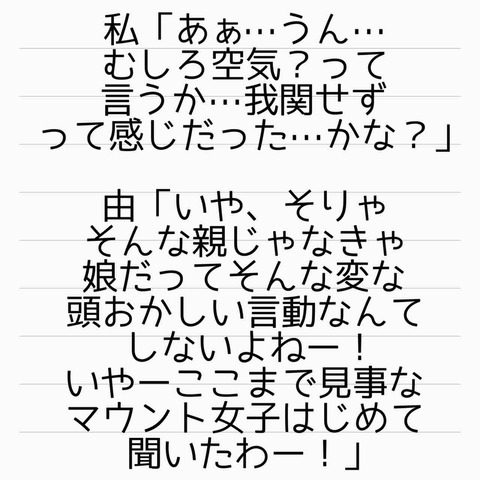 私「あぁ…うん…
むしろ空気？って
言うか…我関せず
って感じだった…かな？」
由「いや、そりゃ
そんな親じゃなきゃ
娘だってそんな変な
頭おかしい言動なんて
しないよねー！
いやーここまで見事な
マウント女子はじめて
聞いたわー！」